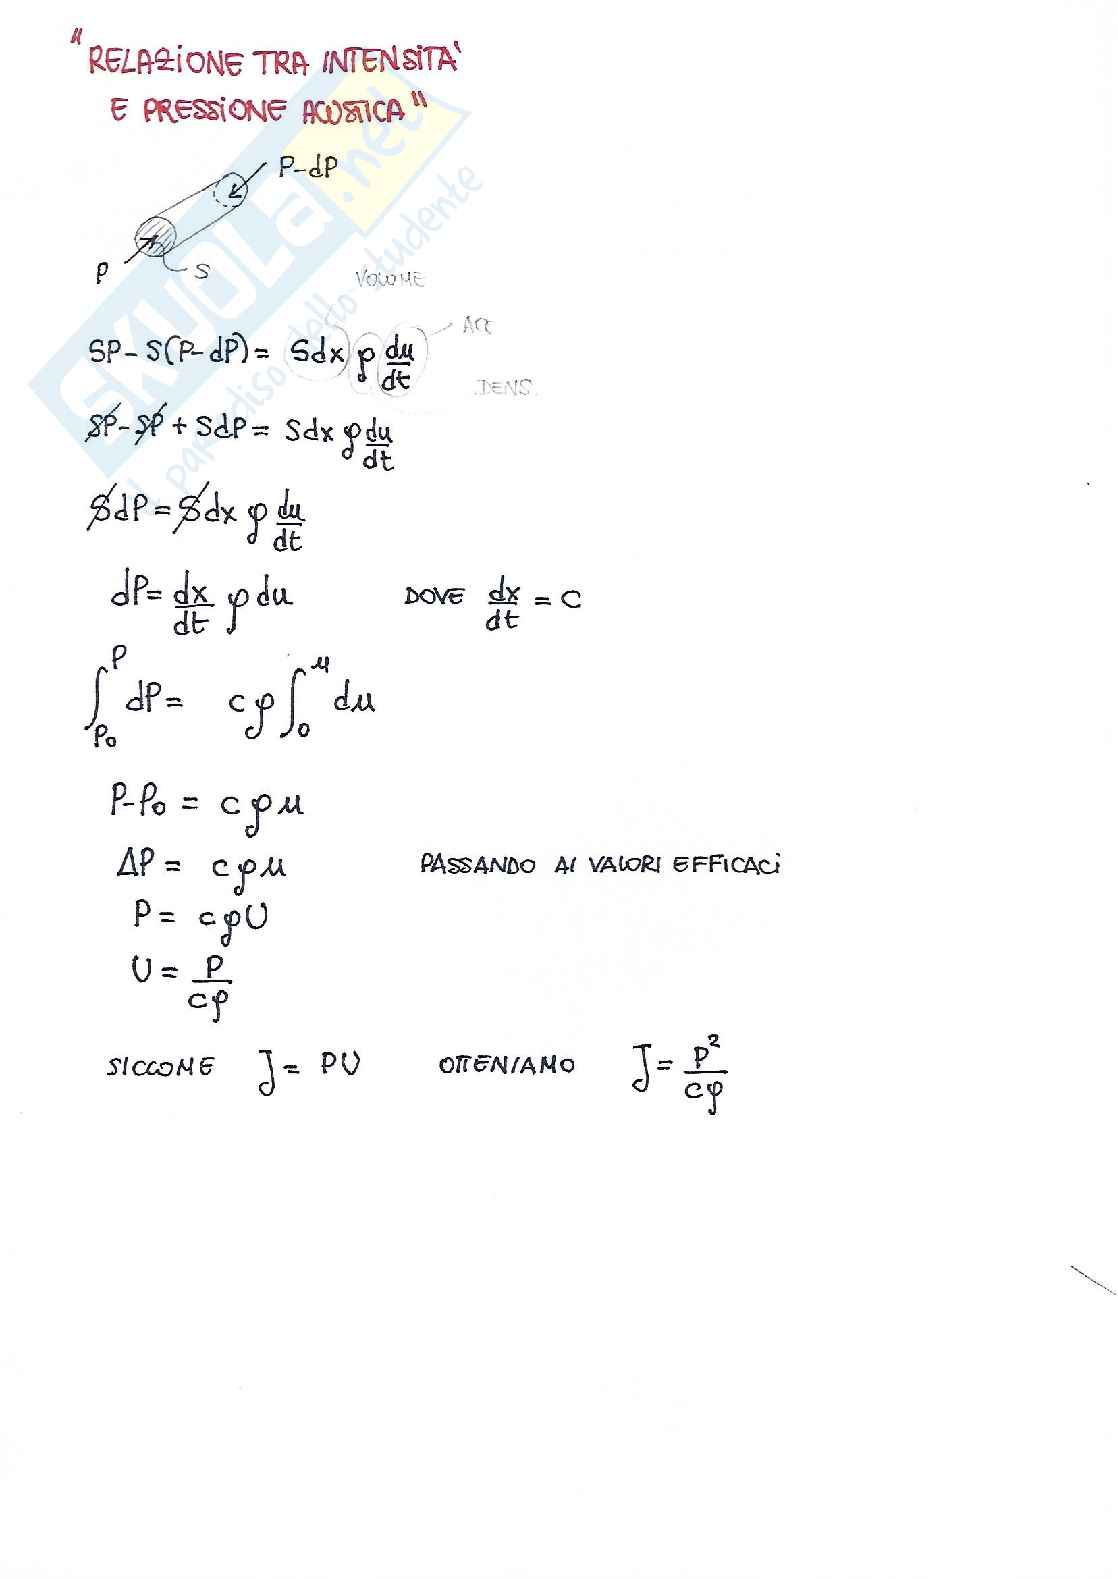 "RELAZIONE TRA INTENSITA'
E PRESSIONE ACUSTICA"
P-dP
P
S
VOLUME
ACC
SP - S(P-dP) = Sdx ρ du/dt
DENS.
SP - SP + SdP = Sdx ρ du/dt
SdP = Sdx ρ du/dt
dP = dx/dt ρ du DOVE dx/dt = C
∫_{P₀}^{P} dP = cρ ∫_{0}^{u} du
P-P₀ = cρu
ΔP = cρu PASSANDO AI VALORI EFFICACI
P = cρU
U = P/cρ
SICCOME J = PU OTTENIAMO J = P²/cρ
SKUOLa.net
il paradiso dello studente